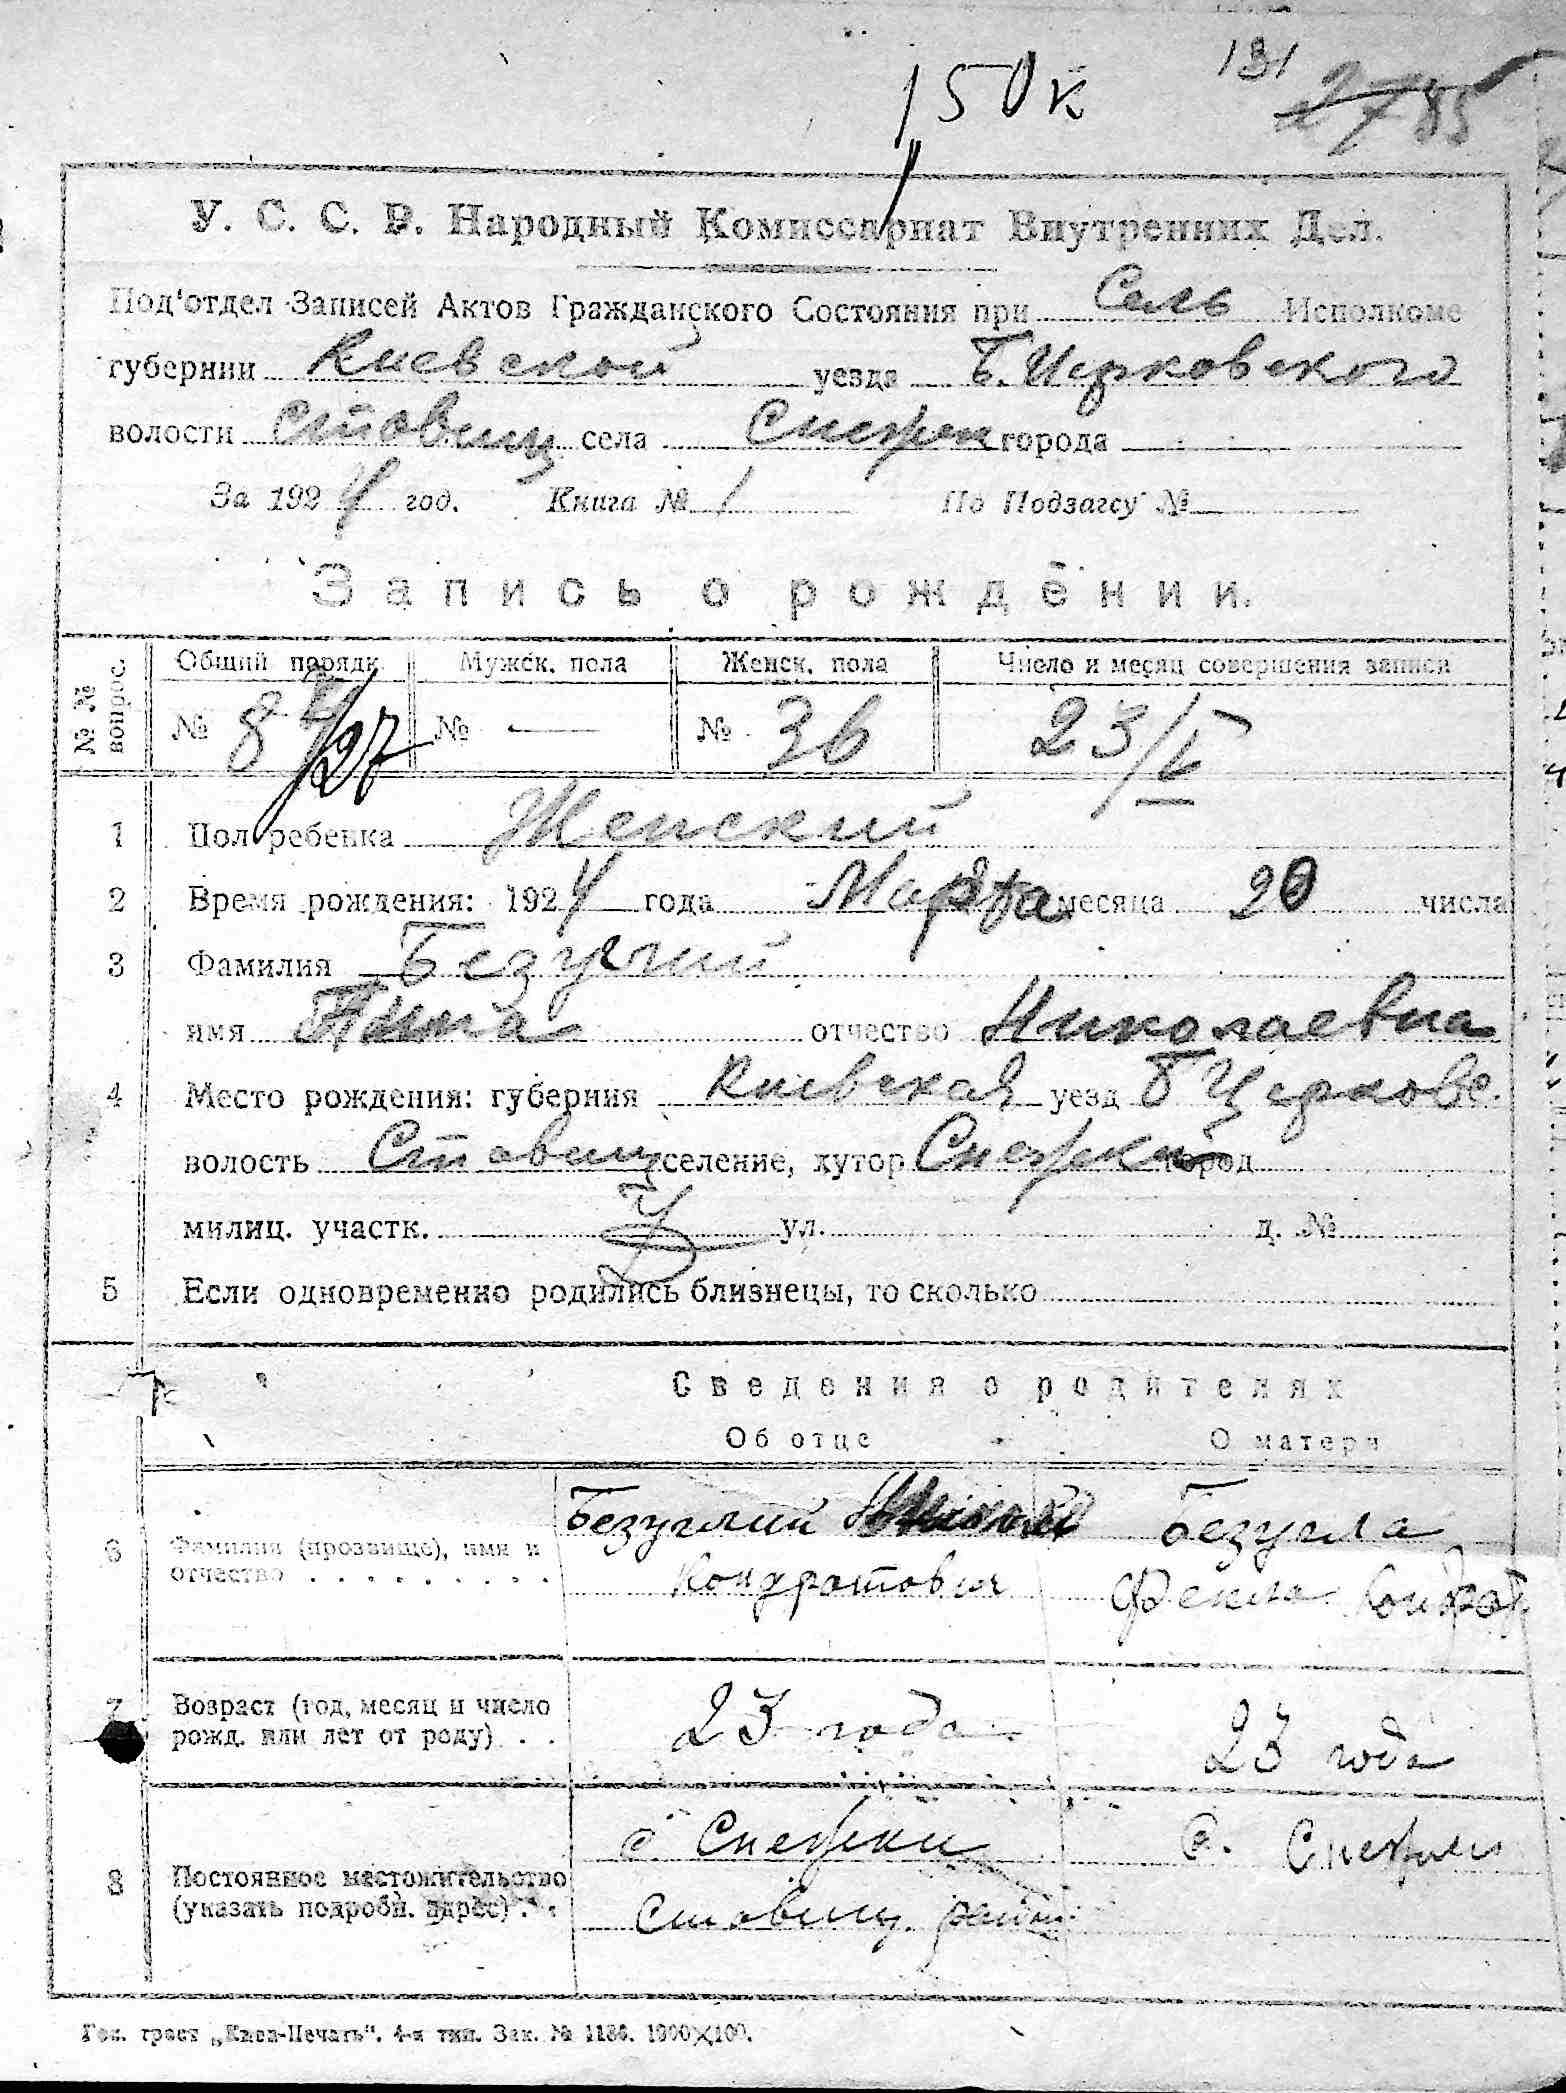 150к
131
27 85
У. С. С. Р. Народный Комиссариат Внутренних Дел.
Под'отдел Записей Актов Гражданского Состояния при Сель Исполкоме
губернии Киевской уезда Б. Церковского
волости Ставищ села Снежки города
За 1924 год. Книга № 1 По Подзагсу №
Запись о рождении.
№ № вопрос. Общий порядк. Мужск. пола Женск. пола Число и месяц совершения записи
№ 8 /27 № — № 36 23/V
1 Пол ребенка Женский
2 Время рождения: 1924 года Марта месяца 20 числа
3 Фамилия Безуглий
имя отчество Николаевна
4 Место рождения: губерния Киевская уезд Б Церковс.
волость Ставищ селение, хутор Снежки город
милиц. участк. ул. д. №
5 Если одновременно родились близнецы, то сколько
Сведения о родителях
Об отце О матери
6 Фамилия (прозвище), имя и отчество . . . . . . . . .
Безуглий Николай
Кондратович
Безугла
Фекла Кондрат.
7 Возраст (год, месяц и число рожд. или лет от роду) . .
23 года
23 года
8 Постоянное местожительство (указать подробн. адрес) . .
с. Снежки
Ставищ. район
с. Снежки
Гос. трест „Киев-Печать". 4-я тип. Зак. № 1186. 1900×100.